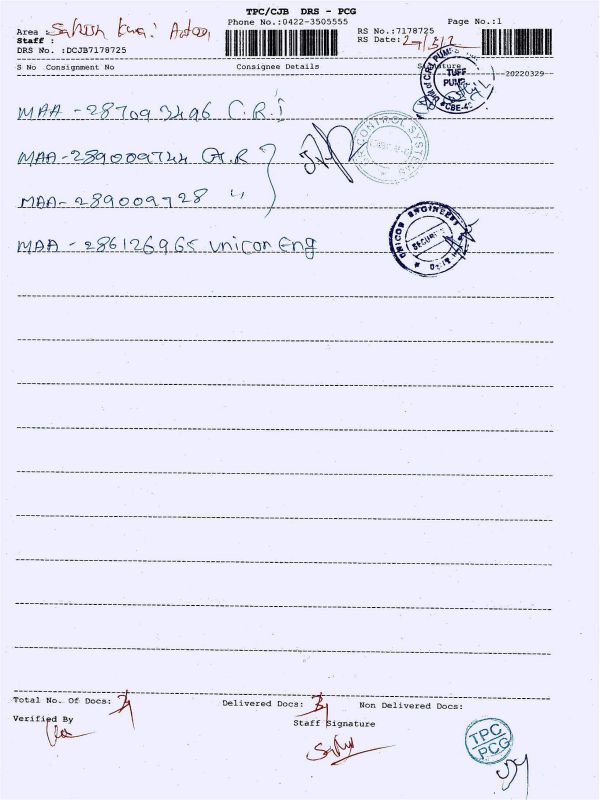 TPC/CJB DRS - PCG
Phone No.:0422-3505555 Page No.:1
Area :
RS No.:7178725
Staff :
RS Date:
DRS No. :DCJB7178725
S No Consignment No Consignee Details Signature
20220329
TUFF
PUMP
CBE-4
MAA - 287093496 C.R.I
CONTROL SYSTEMS
MAA-289009744
MAA-289009728 "
UNICON ENGINEERS
MAA - 286126965 unicon Eng
Total No. Of Docs: Delivered Docs: Non Delivered Docs:
Verified By Staff Signature
TPC
PCG